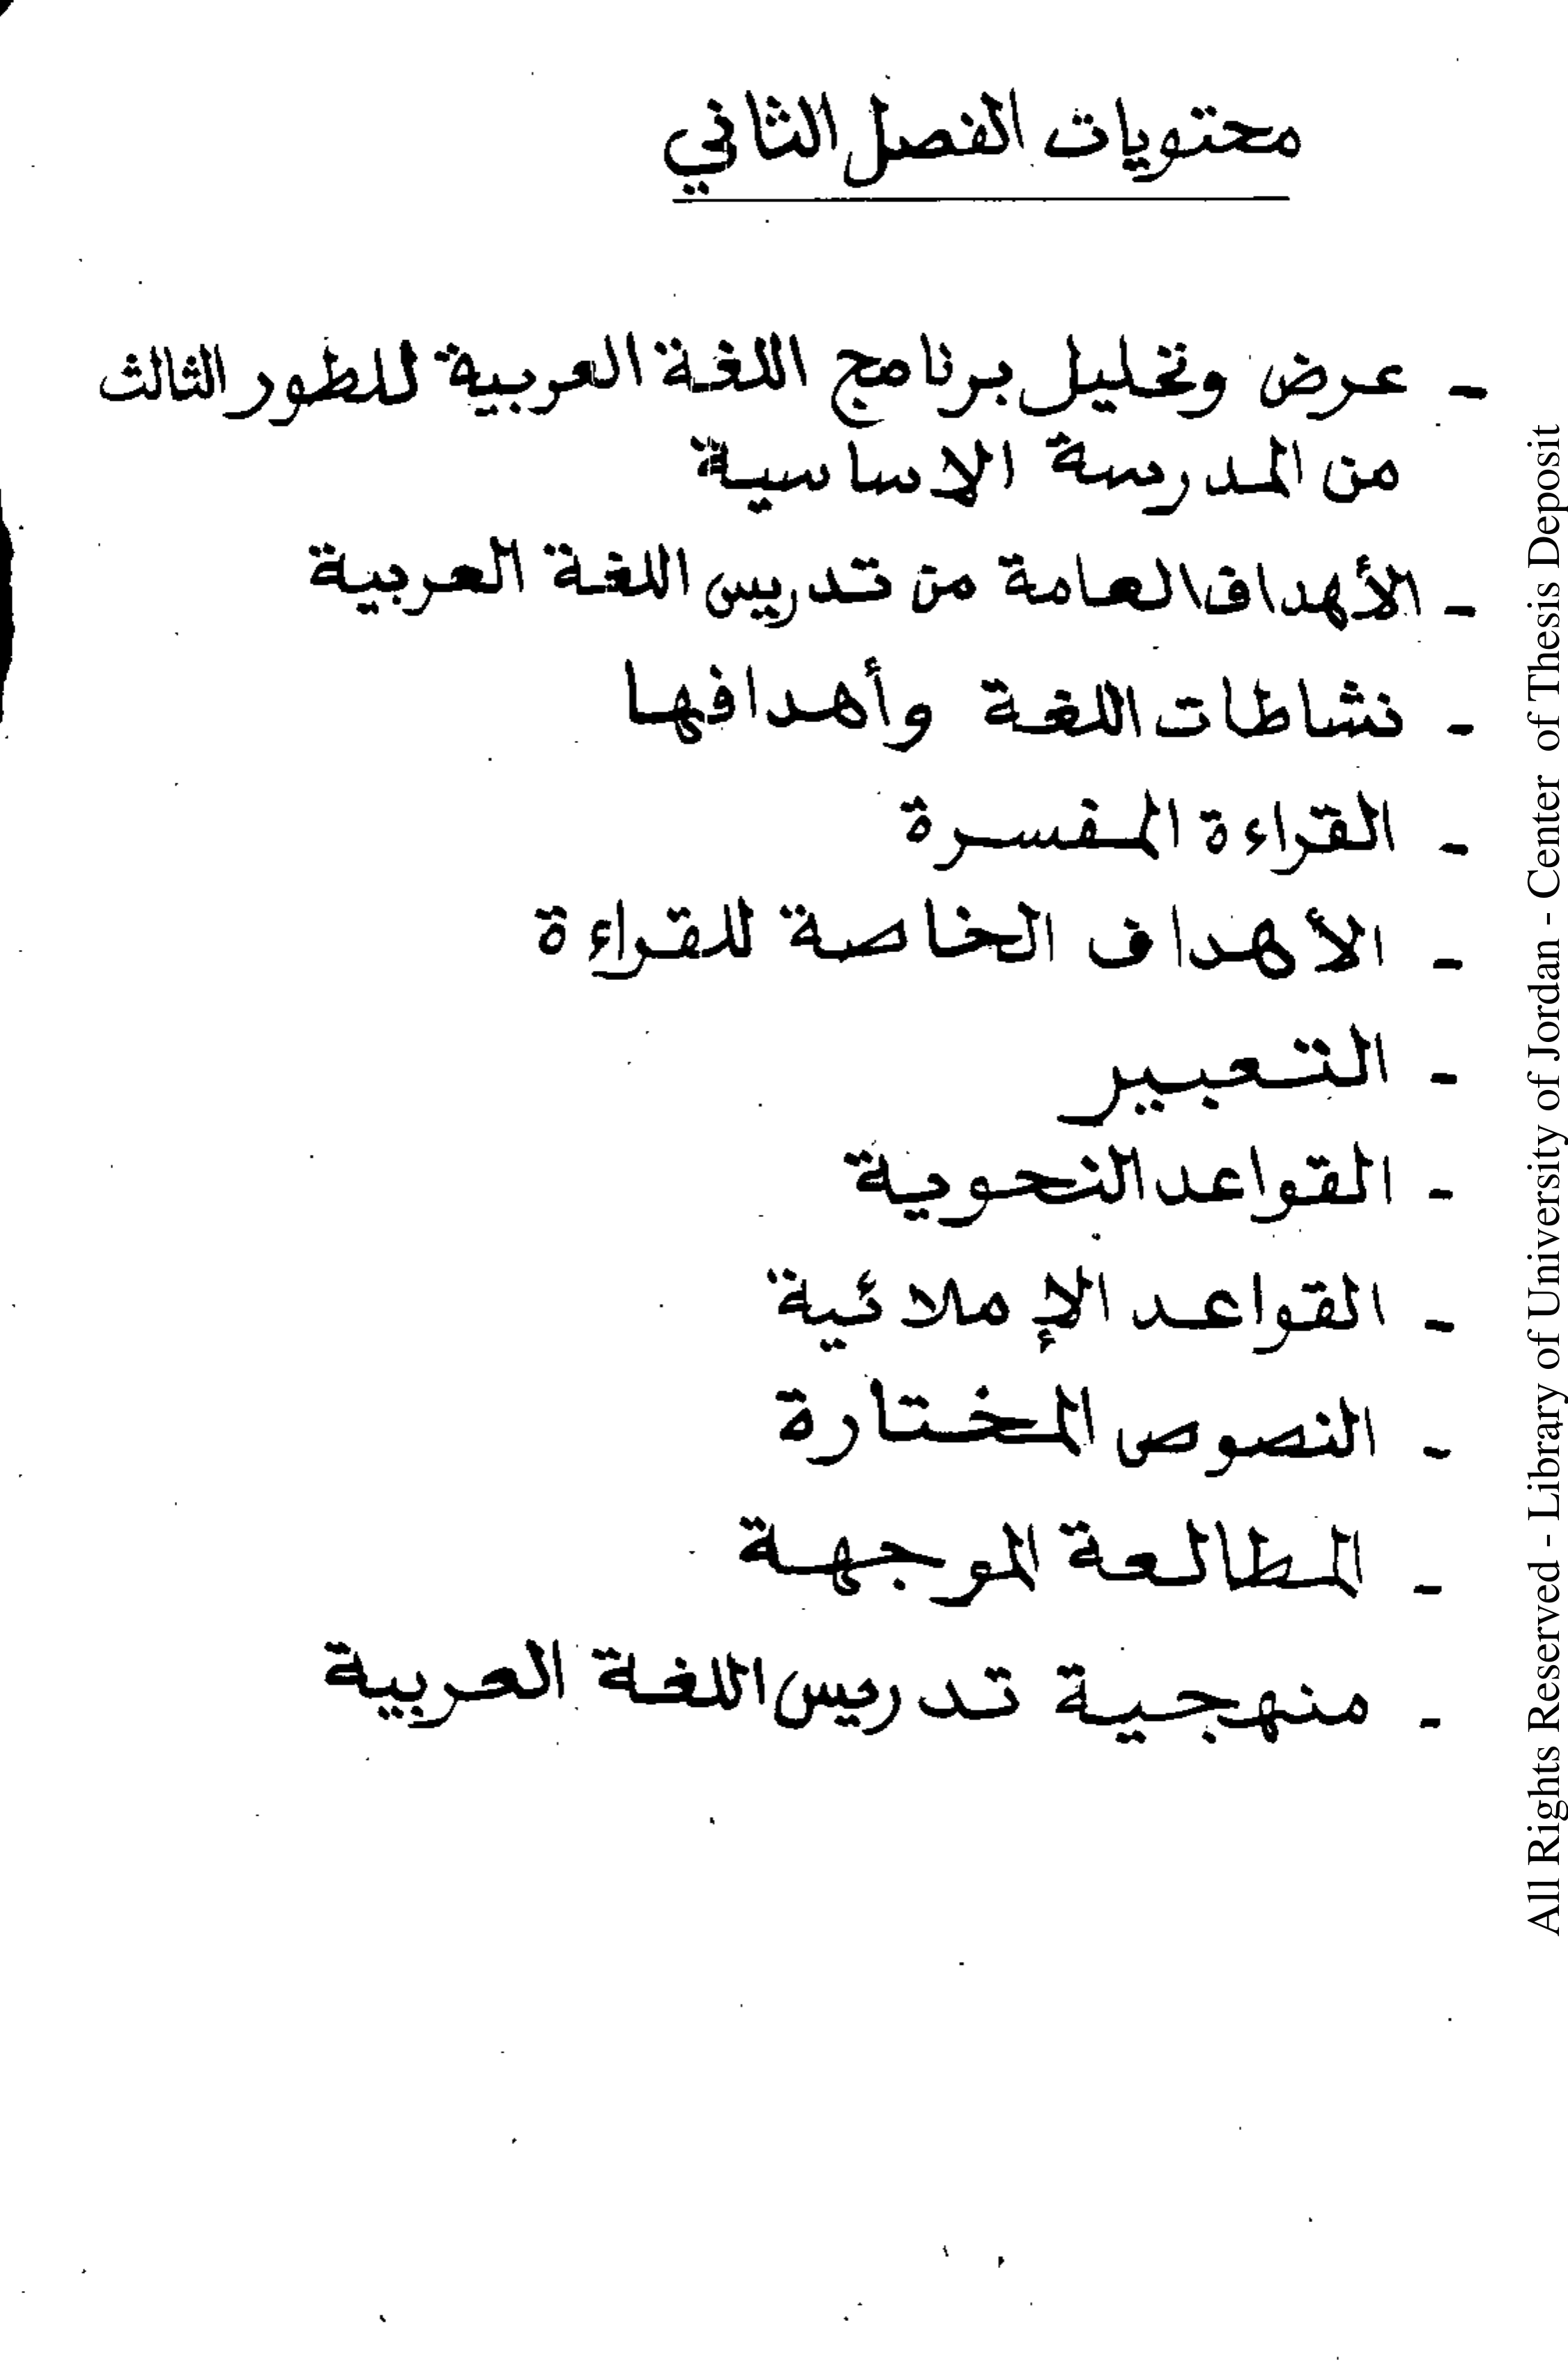 محتويات الفصل الثاني
- عرض وتحليل برنامج اللغة العربية للطور الثالث
من المدرسة الاساسية
- الأهداف العامة من تدريس اللغة العربية
- نشاطات اللغة وأهدافها
- القراءة المفسرة
- الأهداف الخاصة للقراءة
- التعبير
- القواعد النحوية
- القواعد الإملائية
- النصوص المختارة
- المطالعة الموجهة
- منهجية تدريس اللغة العربية
All Rights Reserved - Library of University of Jordan - Center of Thesis Deposit